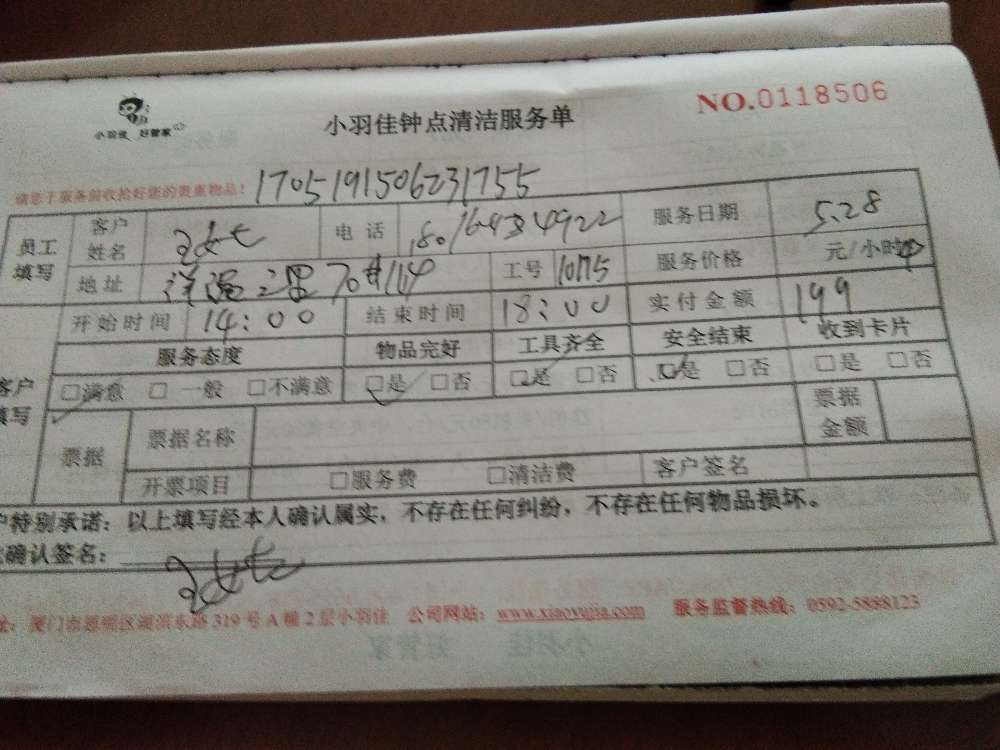 小羽佳 好管家
小羽佳钟点清洁服务单
NO.0118506
请您于服务前收拾好您的贵重物品！ 1705191506231755
员工填写 客户姓名 电话 服务日期 5.28
地址 70#114 工号 10175 服务价格 元/小时
开始时间 14:00 结束时间 18:00 实付金额 199
客户填写 服务态度 物品完好 工具齐全 安全结束 收到卡片
□满意 □一般 □不满意 □是 □否 □是 □否 □是 □否 □是 □否
票据 票据名称 票据金额
开票项目 □服务费 □清洁费 客户签名
户特别承诺：以上填写经本人确认属实，不存在任何纠纷，不存在任何物品损坏。
确认签名：
址：厦门市思明区湖滨东路319号A幢2层小羽佳 公司网站：www.xiaoyujia.com 服务监督热线：0592-5888123